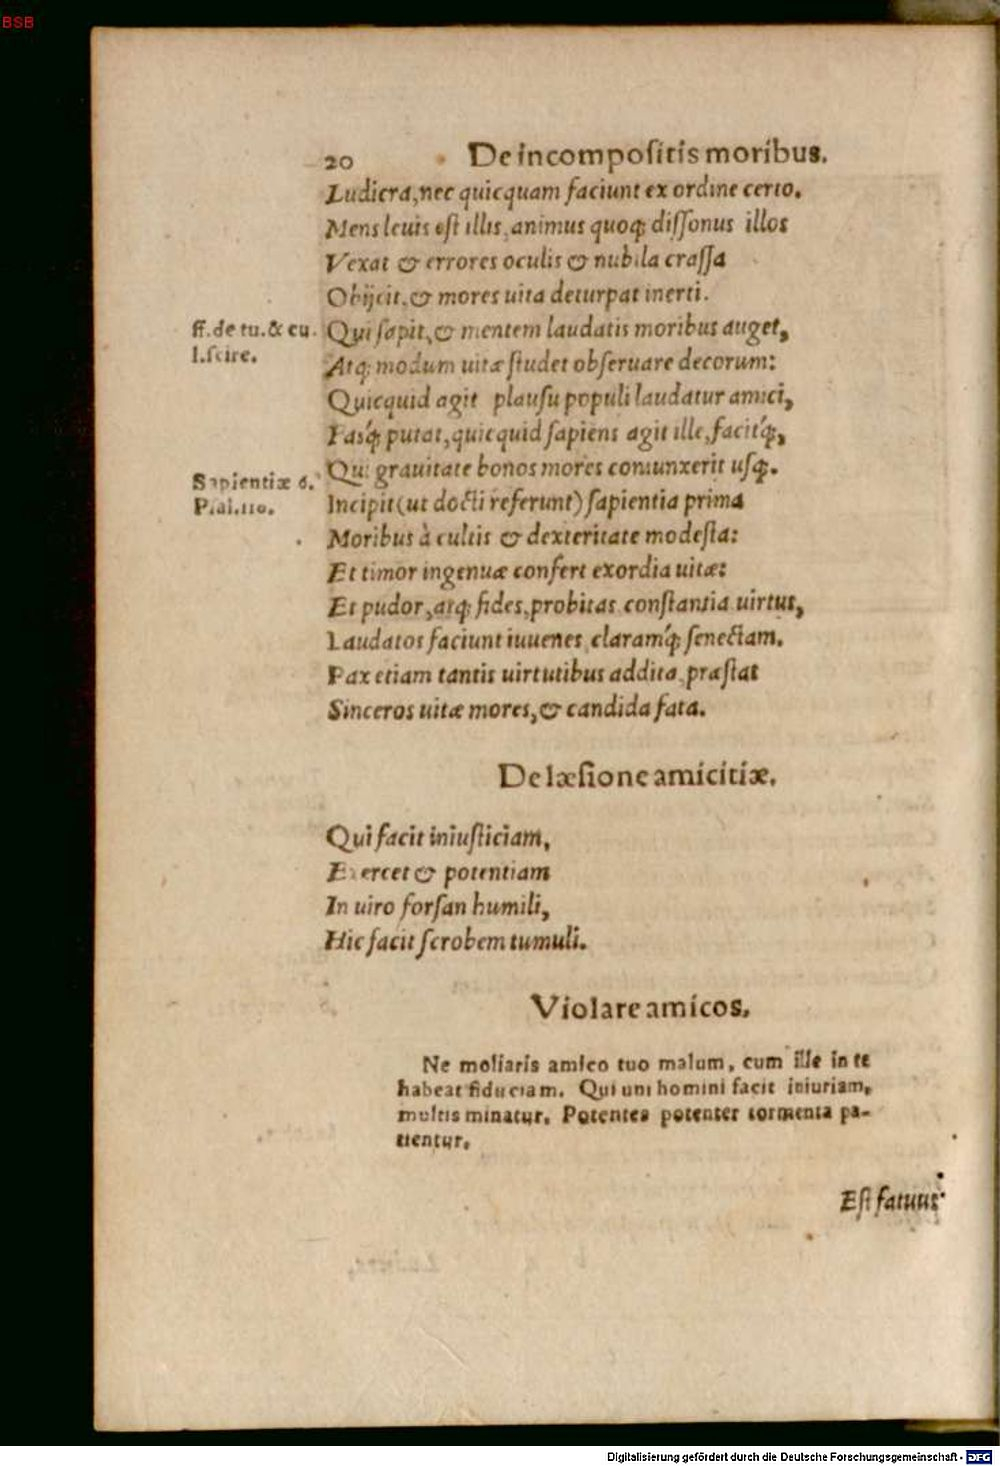 BSB
20 De incompositis moribus.
Ludicra, nec quicquam faciunt ex ordine certo.
Mens leuis est illis, animus quoq; dissonus illos
Vexat & errores oculis & nubila crassa
Obijcit, & mores uita deturpat inerti.
ff. de tu. & cu.
l. scire.
Qui sapit, & mentem laudatis moribus auget,
Atq; modum uitæ studet obseruare decorum:
Quicquid agit plausu populi laudatur amici,
Fasq́; putat, quicquid sapiens agit ille, facitq́;,
Sapientiæ 6.
Psal. 110.
Qui grauitate bonos mores coniunxerit usq;.
Incipit (ut docti referunt) sapientia prima
Moribus à cultis & dexteritate modesta:
Et timor ingenuæ confert exordia uitæ:
Et pudor, atq; fides, probitas constantia uirtus,
Laudatos faciunt iuuenes, claramq́; senectam.
Pax etiam tantis uirtutibus addita, præstat
Sinceros uitæ mores, & candida fata.
De læsione amicitiæ.
Qui facit iniusticiam,
Exercet & potentiam
In uiro forsan humili,
Hic facit scrobem tumuli.
Violare amicos.
Ne moliaris amico tuo malum, cum ille in te
habeat fiduciam. Qui uni homini facit iniuriam,
multis minatur. Potentes potenter tormenta pa-
tientur.
Est fatuus
Digitalisierung gefördert durch die Deutsche Forschungsgemeinschaft - DFG